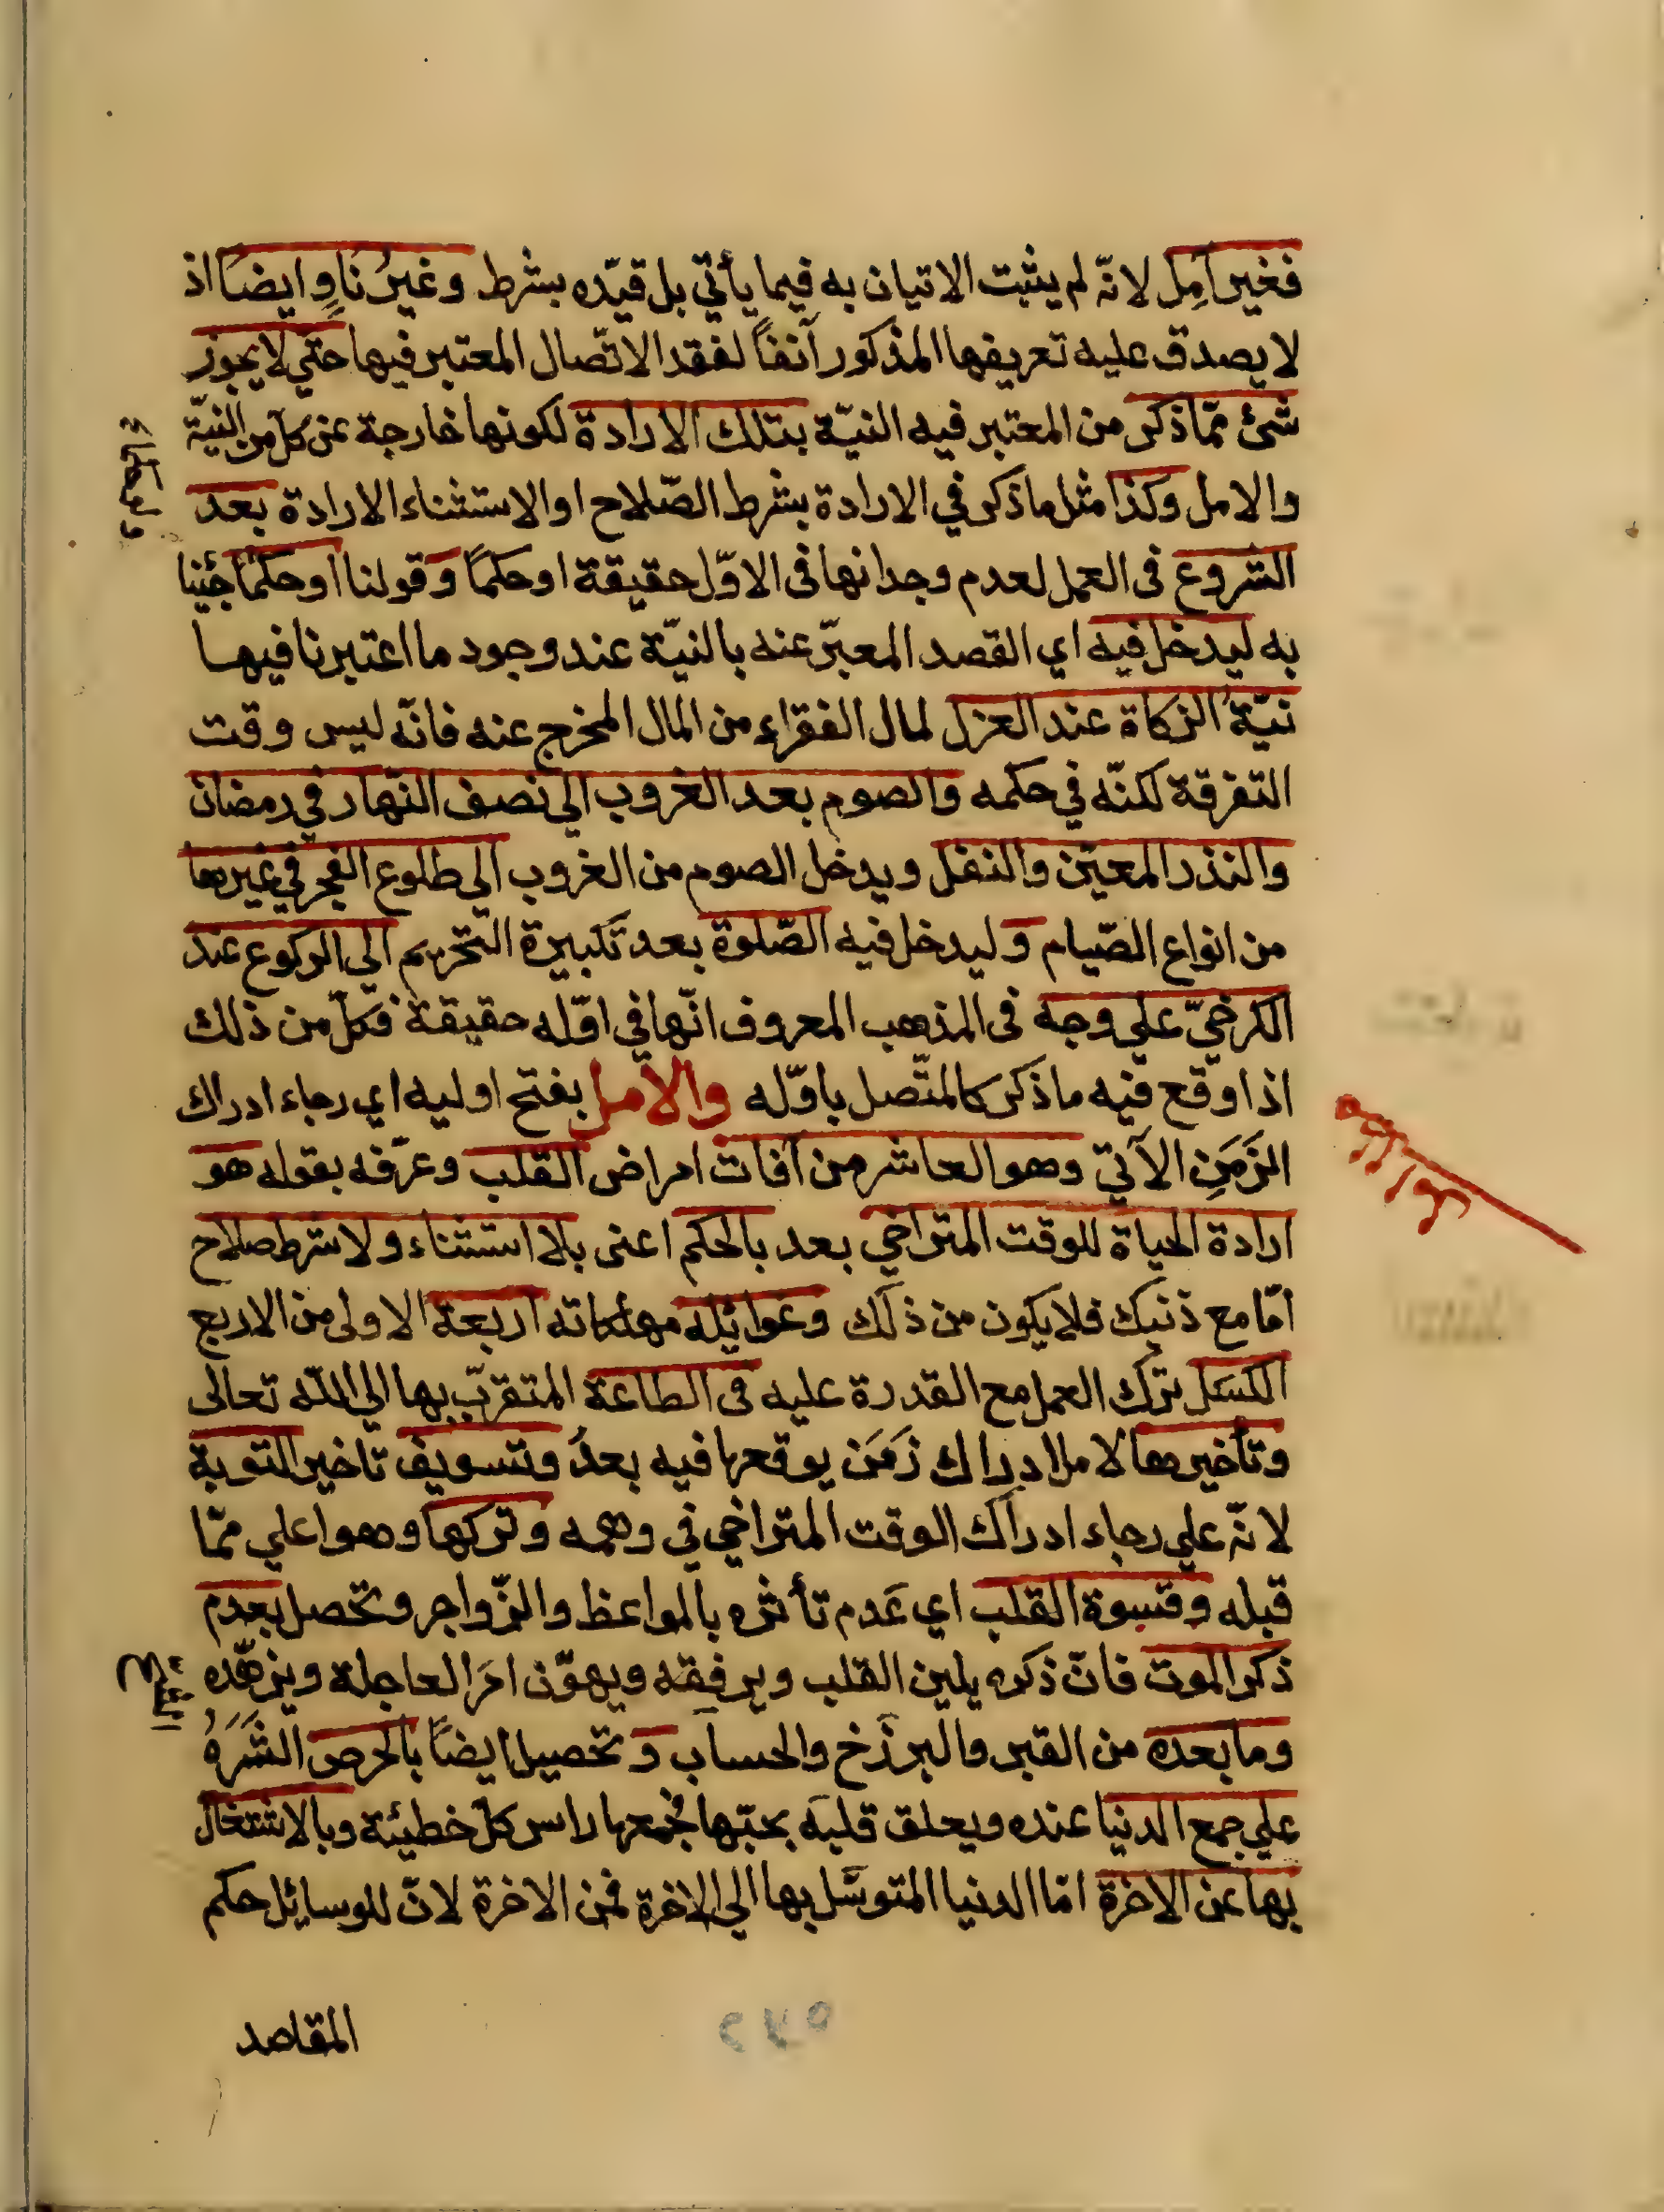 فغير آمِل لانّه لم يثبت الاتيان به فيما يأتي بل قيّده بشرط وغيرُ نَاوٍ ايضاً اذ
لا يصدق عليه تعريفها المذكور آنفاً لفقد الاتّصال المعتبر فيها حتي لا يجوز
شئ ممّا ذكر من المعتبر فيه النيّة بتلك الارادة لكونها خارجة عن كلّ من النيّة
والامل وكذا مثل ما ذكر في الارادة بشرط الصّلاح او الاستثناء الارادة بعد
الشروع فى العمل لعدم وجدانها فى الاوّل حقيقة او حكماً وقولنا او حكماً جئنا
به ليدخل فيه اي القصد المعبّر عنه بالنيّة عند وجود ما اعتبرنا فيها
نيّةُ الزكاة عند العزل لمال الفقراء من المال المخرج عنه فانّه ليس وقت
التفرقة لكنّه في حكمه والصوم بعد الغروب الي نصف النّهار في رمضان
والنذر المعيّن والنفل ويدخل الصوم من الغروب الي طلوع الفجر في غيرها
من انواع الصّيام وليدخل فيه الصّلوة بعد تكبيرة التحريم الي الركوع عند
الكرخيّ علي وجه فى المذهب المعروف انّها في اوّله حقيقة فكلّ من ذلك
اذا وقع فيه ما ذكر كالمتّصل باوّله والامل بفتح اوليه اي رجاء ادراك
الزَمَنِ الآتي وهو العاشر من آفات امراض القلب وعرّفه بقوله هو
ارادة الحياة للوقت المتراخي بعد بالحكم اعنى بلا استثناء ولا شرط صلاح
امّا مع ذنيك فلا يكون من ذلك وغوائله مهلكاته اربعة الاولى من الاربع
الكسَل بترك العمل مع القدرة عليه فى الطاعة المتقرّب بها الي اللّه تعالى
وتأخيرها لامل ادراك زَمَن يوقعها فيه بعدُ وتسويف تاخير التوبة
لانّه علي رجاء ادراك الوقت المتراخي في وهمه وتركها وهو اعلي ممّا
قبله وقسوة القلب اي عَدم تأثره بالمواعظ والزّواجر وتحصل بعدم
ذكر الموت فانّ ذكره يلين القلب ويرفقه ويهوّن امَر العاجلة ويزهّده
وما بعده من القبر والبرزخ والحساب وتحصيل ايضاً بالحرص الشَرَهُ
علي جمع الدنيا عنده ويعلق قلبَه بحبّها فجمعها راس كلّ خطيئة وبالاشتغال
بها عن الاخرة امّا الدنيا المتوسَّل بها الي الاخرة فمن الاخرة لانّ للوسائل حكم
المقاصد